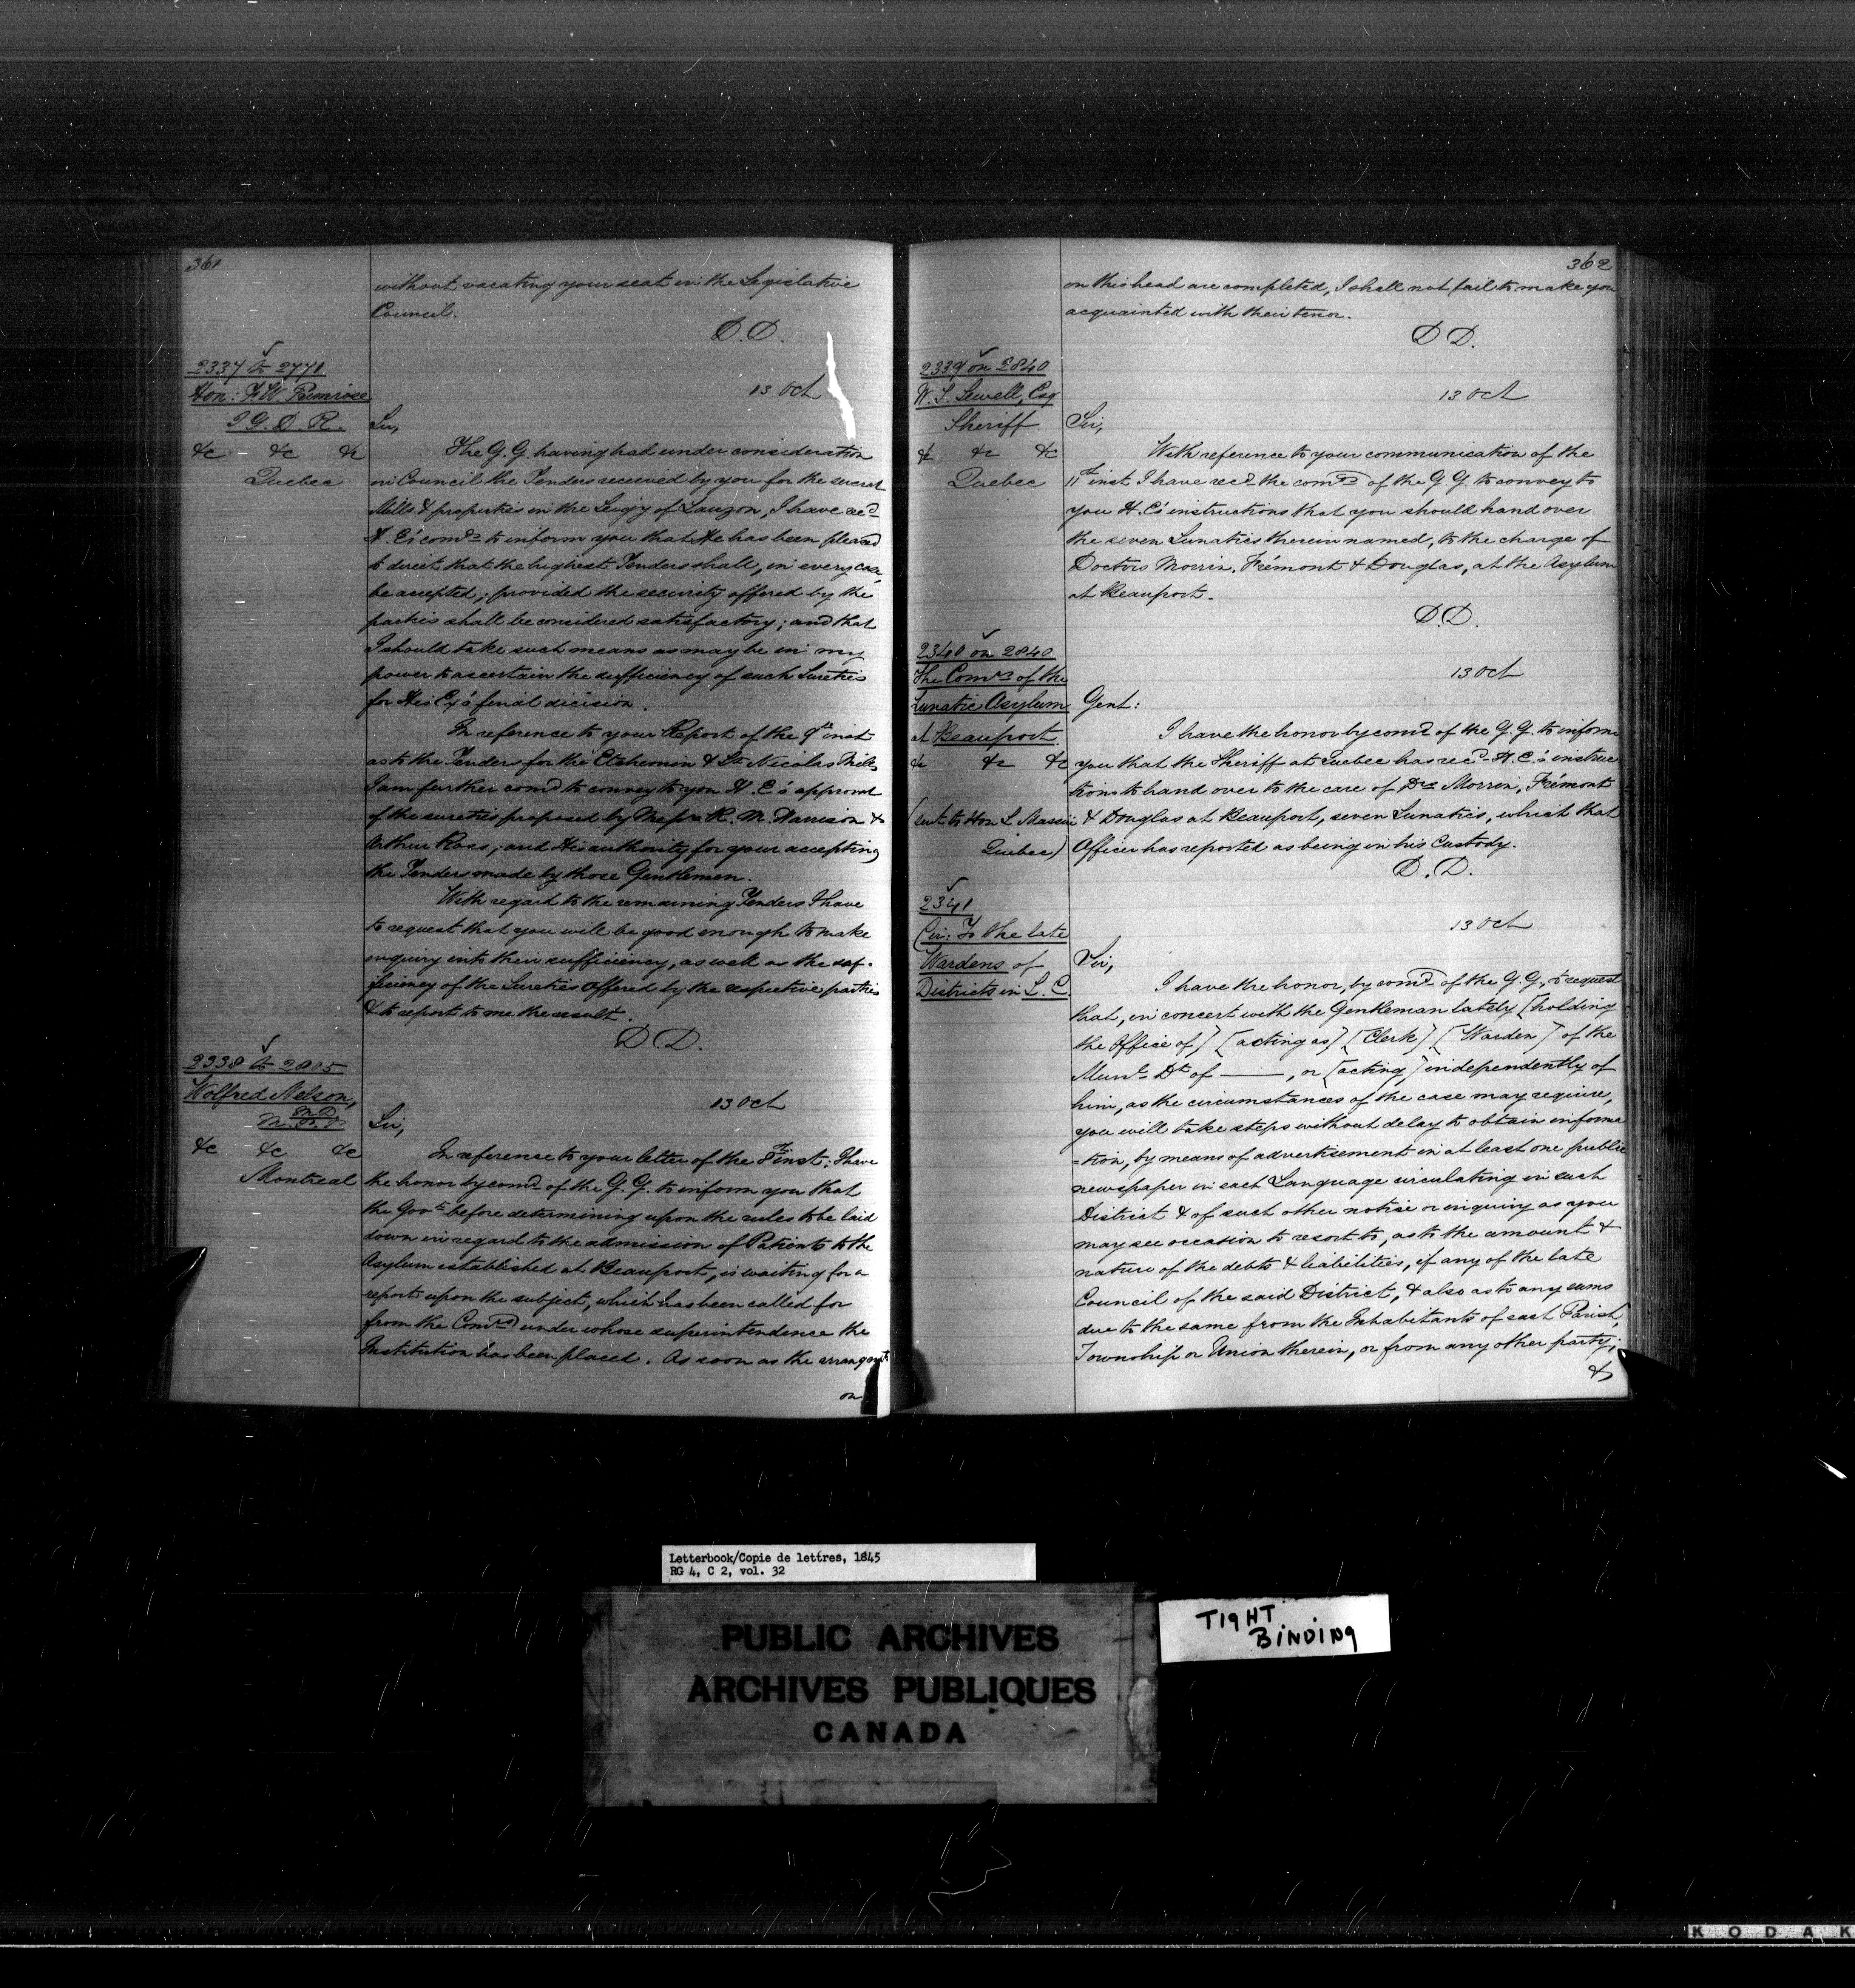 361
without vacating your seat in the Legislative
Council.
D.D.
2337 to 2771
Hon: F. W. Primrose
I G. D. R.
&c &c &c
Quebec
13 Oct
Sir,
The G. G. having had under consideration
in Council the Tenders received by you for the several
Mills & properties in the Seigy of Lauzon, I have recd
H. E's comds to inform you that He has been pleased
to direct that the highest Tenders shall, in every case,
be accepted; provided the security offered by the
parties shall be considered satisfactory; and that
I should take such means as may be in my
power to ascertain the sufficiency of such Sureties
for His Ey's final dicision.
In reference to your Report of the 9th inst
as to the Tenders for the Etchemin & St Nicolas Mills
I am further comd to convey to you H. E's approval
of the sureties proposed by Messrs R. M. Harrison &
Arthur Ross; and His authority for your accepting
the Tenders made by those Gentlemen.
With regard to the remaining Tenders I have
to request that you will be good enough to make
enquiry into their sufficiency, as well as the suf-
ficiency of the Sureties offered by the respective parties
& to report to me the result.
D D.
2338 to 2805
Wolfred Nelson,
M.D.
M. P. P.
&c &c &c
Montreal
13 Oct
Sir,
In reference to your letter of the 7th inst: I have
the honor by comd of the G. G. to inform you that
the Govt before determining upon the rules to be laid
down in regard to the admission of Patients to the
Asylum established at Beauport, is waiting for a
report upon the subject, which has been called for
from the Comrs under whose superintendence the
Institution has been placed. As soon as the arrangmts
on
362
on this head are completed, I shall not fail to make you
acquainted with their tenor.
D D.
2339 on 2840
W. S. Sewell, Esq
Sheriff
&c &c &c
Quebec
13 Oct
Sir,
With reference to your communication of the
11th inst I have recd the comds of the G. G. to convey to
you H. E's instructions that you should hand over
the seven Lunatics therein named, to the charge of
Doctors Morrin, Frémont & Douglas, at the Asylum
at Beauport.
D.D.
2340 on 2840
The Comrs of the
Lunatic Asylum
at Beauport
&c &c &c
(sent to Hon L Massue
Quebec)
13 Oct
Gent:
I have the honor by comd of the G. G. to inform
you that the Sheriff at Quebec has recd H. E's instruc
tions to hand over to the care of Drs Morrin, Frémont
& Douglas at Beauport, seven Lunatics, which that
Officer has reported as being in his Custody.
D. D.
2341
Cir: To the late
Wardens of
Districts in L. C.
13 Oct
Sir,
I have the honor, by comd of the G. G., to request
that, in concert with the Gentleman lately [holding
the Office of] [acting as] [Clerk] [Warden] of the
Munl Dt of ——, or [acting] independently of
him, as the circumstances of the case may require,
you will take steps without delay to obtain informa
=tion, by means of advertisement in at least one public
newspaper in each Language circulating in such
District & of such other notice or inquiry as you
may see occasion to resort to, as to the amount &
nature of the debts & liabilities, if any of the late
Council of the said District, & also as to any sums
due to the same from the Inhabitants of each Parish,
Township or Union therein, or from any other party;
&
Letterbook/Copie de lettres, 1845
RG 4, C 2, vol. 32
PUBLIC ARCHIVES
ARCHIVES PUBLIQUES
CANADA
TIGHT
BINDING
KODAK